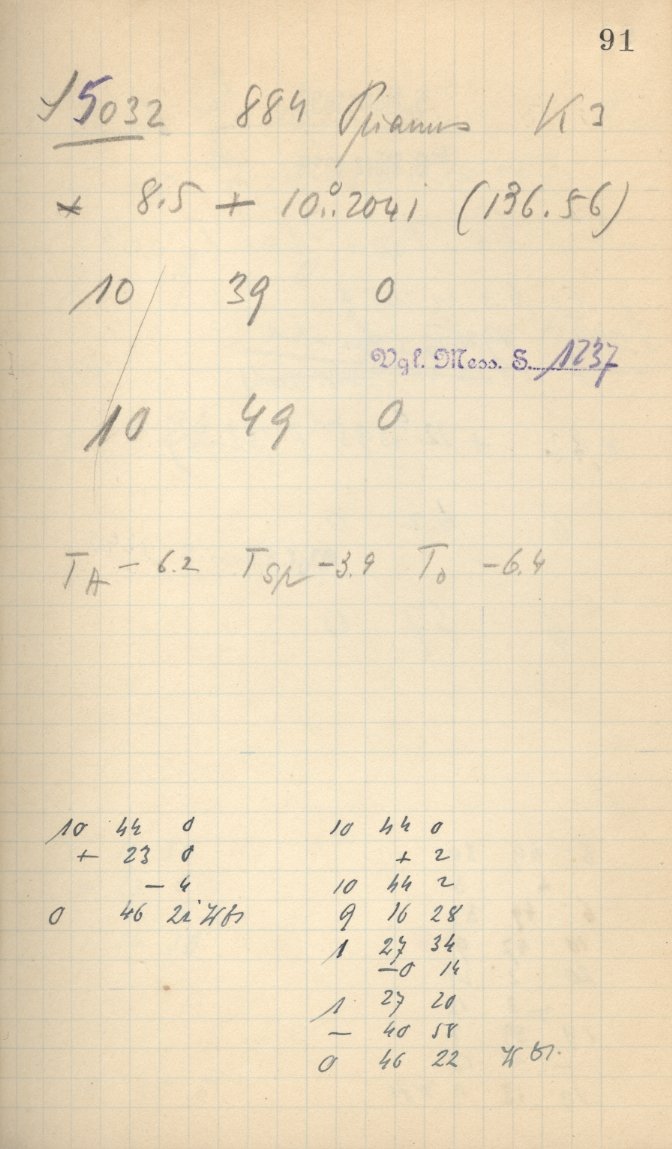 91
S5032 884 Priamus K3
* 8.5 + 10°.2041 (136.56)
10 39 0
Vgl. Mess. S. 1237
10 49 0
T_A - 6.2 T_Sp - 3.9 T_0 - 6.4
10 44 0
+ 23 0
- 4
0 46 21
10 44 0
+ 2
10 44 2
9 16 28
1 27 34
-0 14
1 27 20
- 40 58
0 46 22